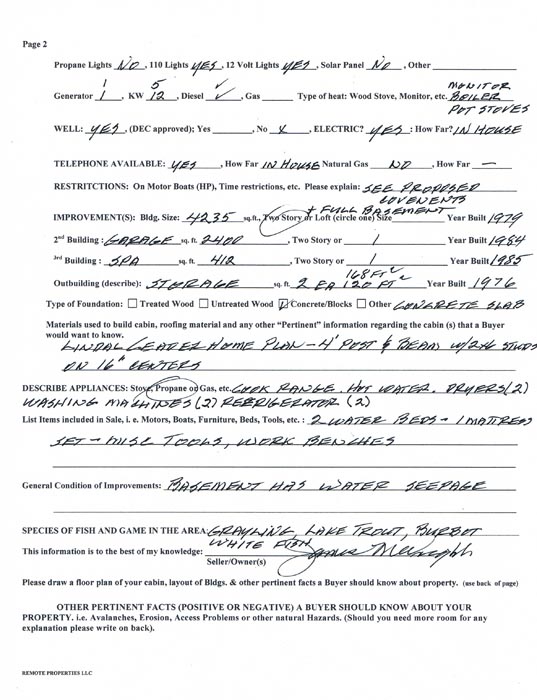 Page 2
Propane Lights NO , 110 Lights YES , 12 Volt Lights YES , Solar Panel NO , Other
1 5 ✓ MONITOR
Generator 1 , KW 12 , Diesel ✓ , Gas Type of heat: Wood Stove, Monitor, etc. BOILER
POT STOVES
WELL: YES , (DEC approved); Yes , No X , ELECTRIC? YES : How Far? IN HOUSE
TELEPHONE AVAILABLE: YES , How Far IN HOUSE Natural Gas NO , How Far —
RESTRITCTIONS: On Motor Boats (HP), Time restrictions, etc. Please explain: SEE PROPOSED
COVENENTS
+ FULL BASEMENT
IMPROVEMENT(S): Bldg. Size: 4235 sq.ft., Two Story or Loft (circle one) Size Year Built 1979
2nd Building : GARAGE sq. ft. 2400 , Two Story or / Year Built 1984
3rd Building : SPA sq. ft. 412 , Two Story or / Year Built 1985
168 FT2
Outbuilding (describe): STORAGE sq. ft. 2 EA 120 FT2 Year Built 1976
Type of Foundation: ☐ Treated Wood ☐ Untreated Wood ☑ Concrete/Blocks ☐ Other CONCRETE SLAB
Materials used to build cabin, roofing material and any other "Pertinent" information regarding the cabin (s) that a Buyer
would want to know.
LINDAL CEADER HOME PLAN - 4' POST & BEAM W/2x6 STUDS
ON 16" CENTERS
DESCRIBE APPLIANCES: Stove, Propane or Gas, etc. COOK RANGE. HOT WATER. DRYERS (2)
WASHING MACHINES (2) REFRIGERATOR (2)
List Items included in Sale, i. e. Motors, Boats, Furniture, Beds, Tools, etc. : 2 WATER BEDS - 1 MATTRESS
SET - MISC TOOLS, WORK BENCHES
General Condition of Improvements: BASEMENT HAS WATER SEEPAGE
SPECIES OF FISH AND GAME IN THE AREA: GRAYLING, LAKE TROUT, BURBOT
WHITE FISH
This information is to the best of my knowledge:
Seller/Owner(s)
Please draw a floor plan of your cabin, layout of Bldgs. & other pertinent facts a Buyer should know about property. (use back of page)
OTHER PERTINENT FACTS (POSITIVE OR NEGATIVE) A BUYER SHOULD KNOW ABOUT YOUR
PROPERTY. i.e. Avalanches, Erosion, Access Problems or other natural Hazards. (Should you need more room for any
explanation please write on back).
REMOTE PROPERTIES LLC